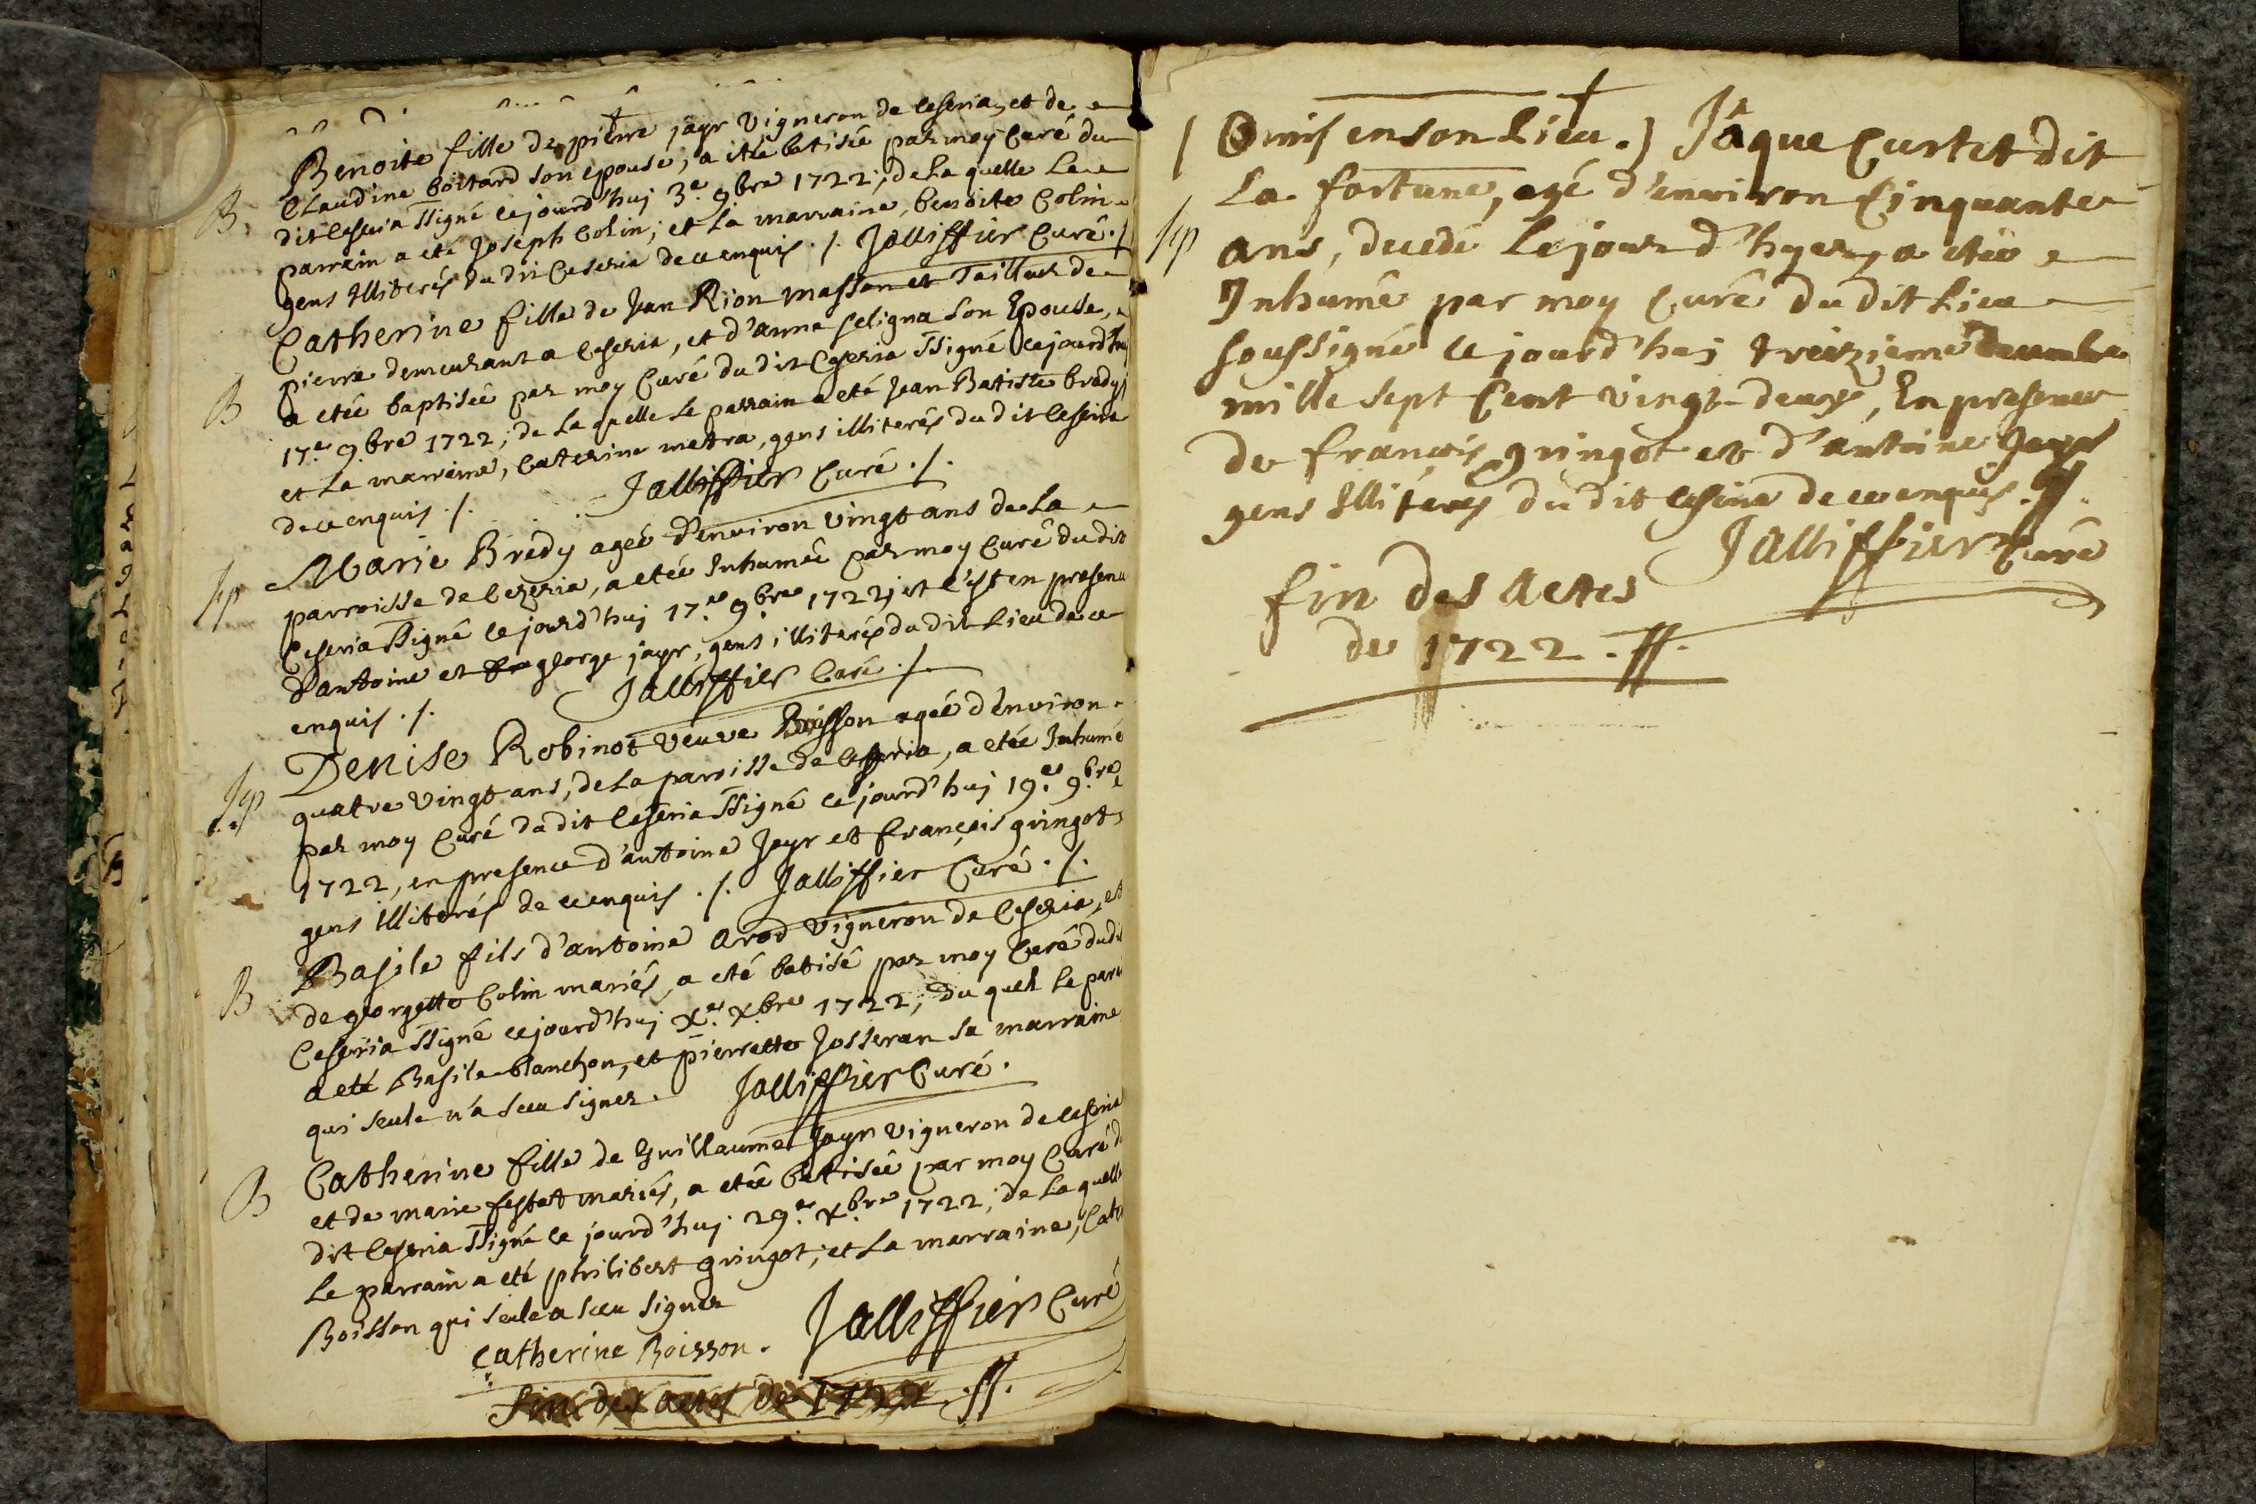 Benoite fille de pierre jayr vigneron de Ceseria, et de
B. Claudine boitard son epouse, a etée batisée par moy Curé du
dit Ceseria ssigné ce jourd'huj 3.e 9.bre 1722; de La quelle Le
parrain a eté Joseph Colin; et La marraine, benoite Colin
gens Illiterés du dit Ceseria de ce enquis ./. Jalliffier Curé ./.
Catherine fille de Jean Rion masson et Tailleur de
pierre demeurant a Ceseria, et d'anne seligna son Epouse,
B a etée baptisée par moy Curé du dit Ceseria ssigné ce jourd'huj
17.e 9.bre 1722; de La quelle Le parrain a eté Jean Batiste bredy
et La marraine, Caterine metra, gens illiterés du dit Ceseria
de ce enquis ./. Jalliffier Curé ./.
Sep Marie Bredy ageé d'environ vingt ans de La
parroisse de Cezeria, a etée Inhumée par moy Curé du dit
Ceseria ssigné ce jourd'huj 17.e 9.bre 1722, et c'est en presence
d'antoine et george jayr, gens illiterés du dit Lieu de ce
enquis ./. Jalliffier Curé ./.
Sep Denise Robinot veuve Boisson ageé d'environ
quatre vingt ans, de La parroisse de Ceseria, a etée Inhumé
par moy Curé du dit Ceseria ssigné ce jourd'huj 19.e 9.bre
1722, en presence d'antoine Jayr et françois gringot
gens Illiterés de ce enquis ./. Jalliffier Curé ./.
Basile fils d'antoine arod vigneron de Ceseria, et
B de georgette Colin mariés, a eté batisé par moy Curé du dit
Ceseria ssigné ce jourd'huj X.e X.bre 1722; du quel Le parr
a eté Basile blanchon, et pierrette Josseran sa marraine
qui seule n'a sceu signer. Jalliffier Curé.
B Catherine fille de Guillaume Jayr vigneron de Ceseria
et de marie festet mariés, a etée batisée par moy Curé d
dit Ceseria ssigné ce jourd'huj 29.e X.bre 1722; de La quelle
Le parrain a eté philibert gringot; et La marraine, Cate
Boisson qui seule a sceu signer
Catherine Boisson. Jalliffier Curé
fin des actes de 1722 .//.
( Omis en son Lieu. ) Jâque Curtet dit
La fortune, agé d'environ Cinquante
Sep ans, decedé Le jour d'hyer, a eteé
Inhumê par moy Curê du dit Lieu
soussigné ce jourd'huj treizieme decembre
mille sept Cent vingt-deux, En presence
de françois gringot et d'antoine Jayr
gens Illiterés du dit Ceseria de ce enquis .//.
Jalliffier Curé
fin des Actes
de 1722 .//.